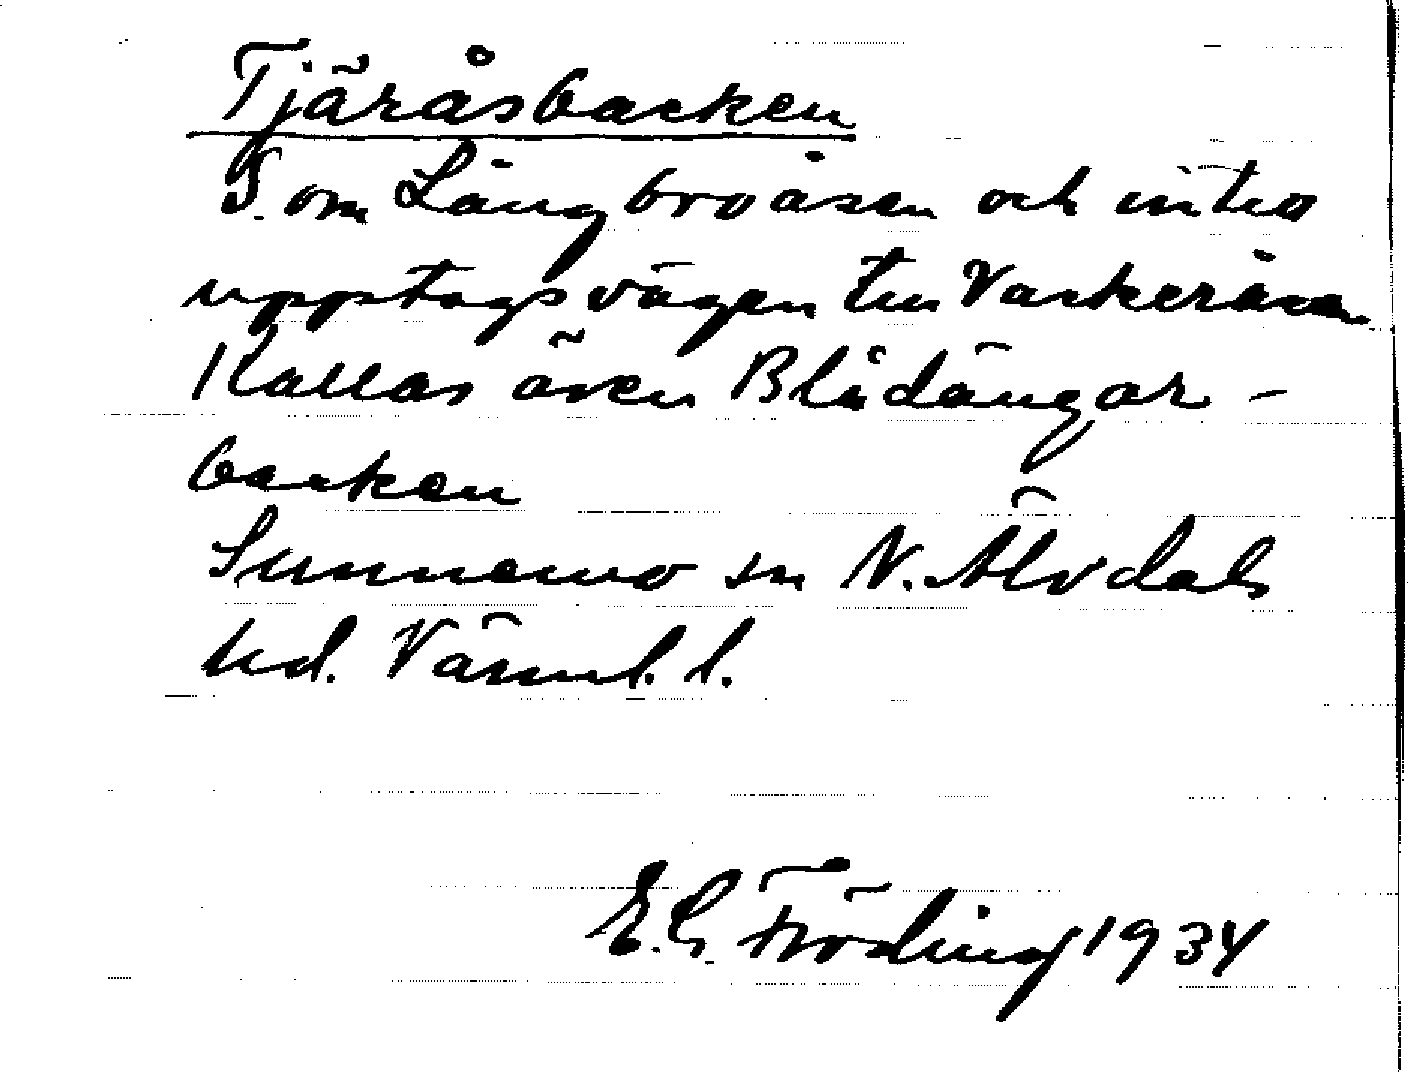 Tjäråsbacken
S. om Långbroåsen och intill
upptagsvägen till Vackeråsen
Kallas även Blådängar-
backen
Sunnemo sn N. Älvdals
hd. Värml. l.
E. G. Fröding 1934